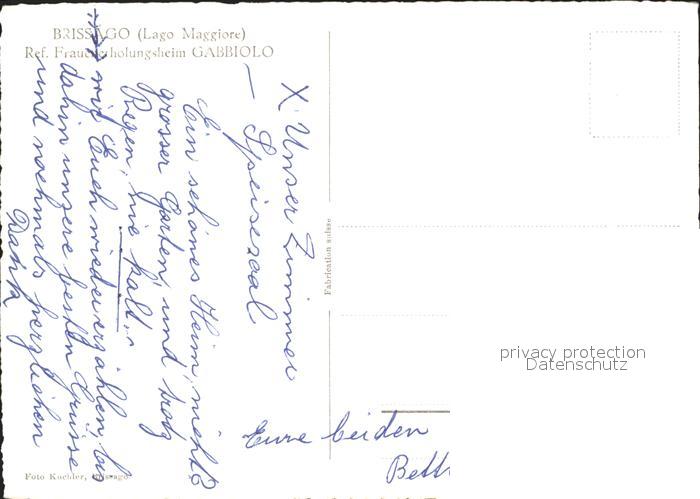 BRISSAGO (Lago Maggiore)
Ref. Frauenerholungsheim GABBIOLO
X Unser Zimmer
— Speisesaal
Ein schönes Heim, nicht?
grosser Garten, und trotz
Regen, nie kalt.
wir Euch wieder erzählen, bis
dahin unsere besten Grüsse
und nochmals herzlichen
Dank
Eure beiden
Bett
Fabrication suisse
Foto Kuehler, Brissago
privacy protection
Datenschutz